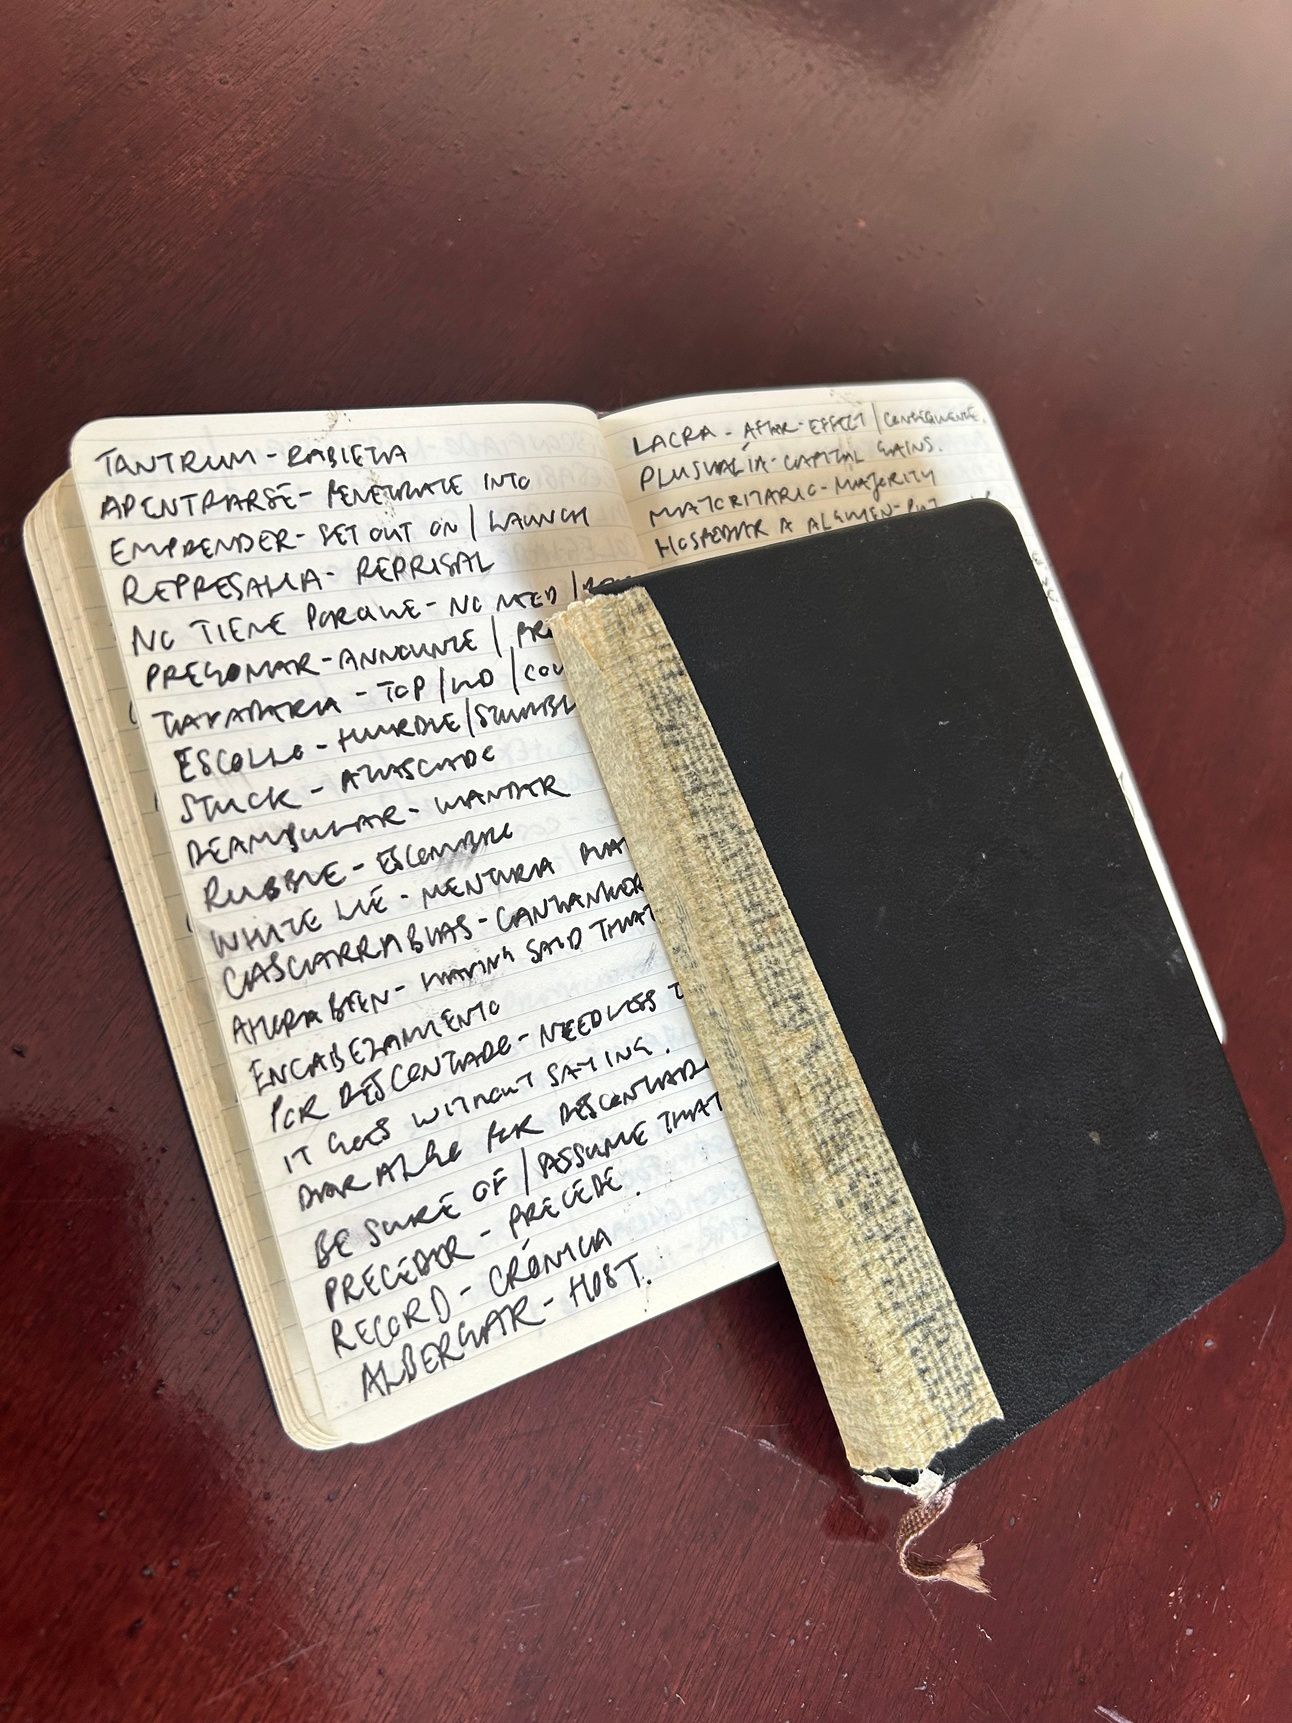 TANTRUM - RABIETA
ADENTRARSE - PENETRATE INTO
EMPRENDER - SET OUT ON / LAUNCH
REPRESALIA - REPRISAL
NO TIENE PORQUE - NO NEED /
PREGONAR - ANNOUNCE /
TAPADERA - TOP / LID /
ESCOLLO - HURDLE /
STUCK - ATASCADO
DEAMBULAR - WANDER
RUBBLE - ESCOMBRO
WHITE LIE - MENTIRA
CASCARRABIAS -
AHORA BIEN - HAVING SAID THAT
ENCABEZAMIENTO
POR DESCONTADO - NEEDLESS
IT GOES WITHOUT SAYING.
DAR ALGO POR DESCONTADO
BE SURE OF / ASSUME THAT
PRECEDER - PRECEDE.
RECORD - CRÓNICA
ALBERGAR - HOST.
LACRA - AFTER-EFFECT / CONSEQUENCE.
PLUSVALÍA - CAPITAL GAINS.
MAYORITARIO - MAJORITY
HOSPEDAR A ALGUIEN - PUT